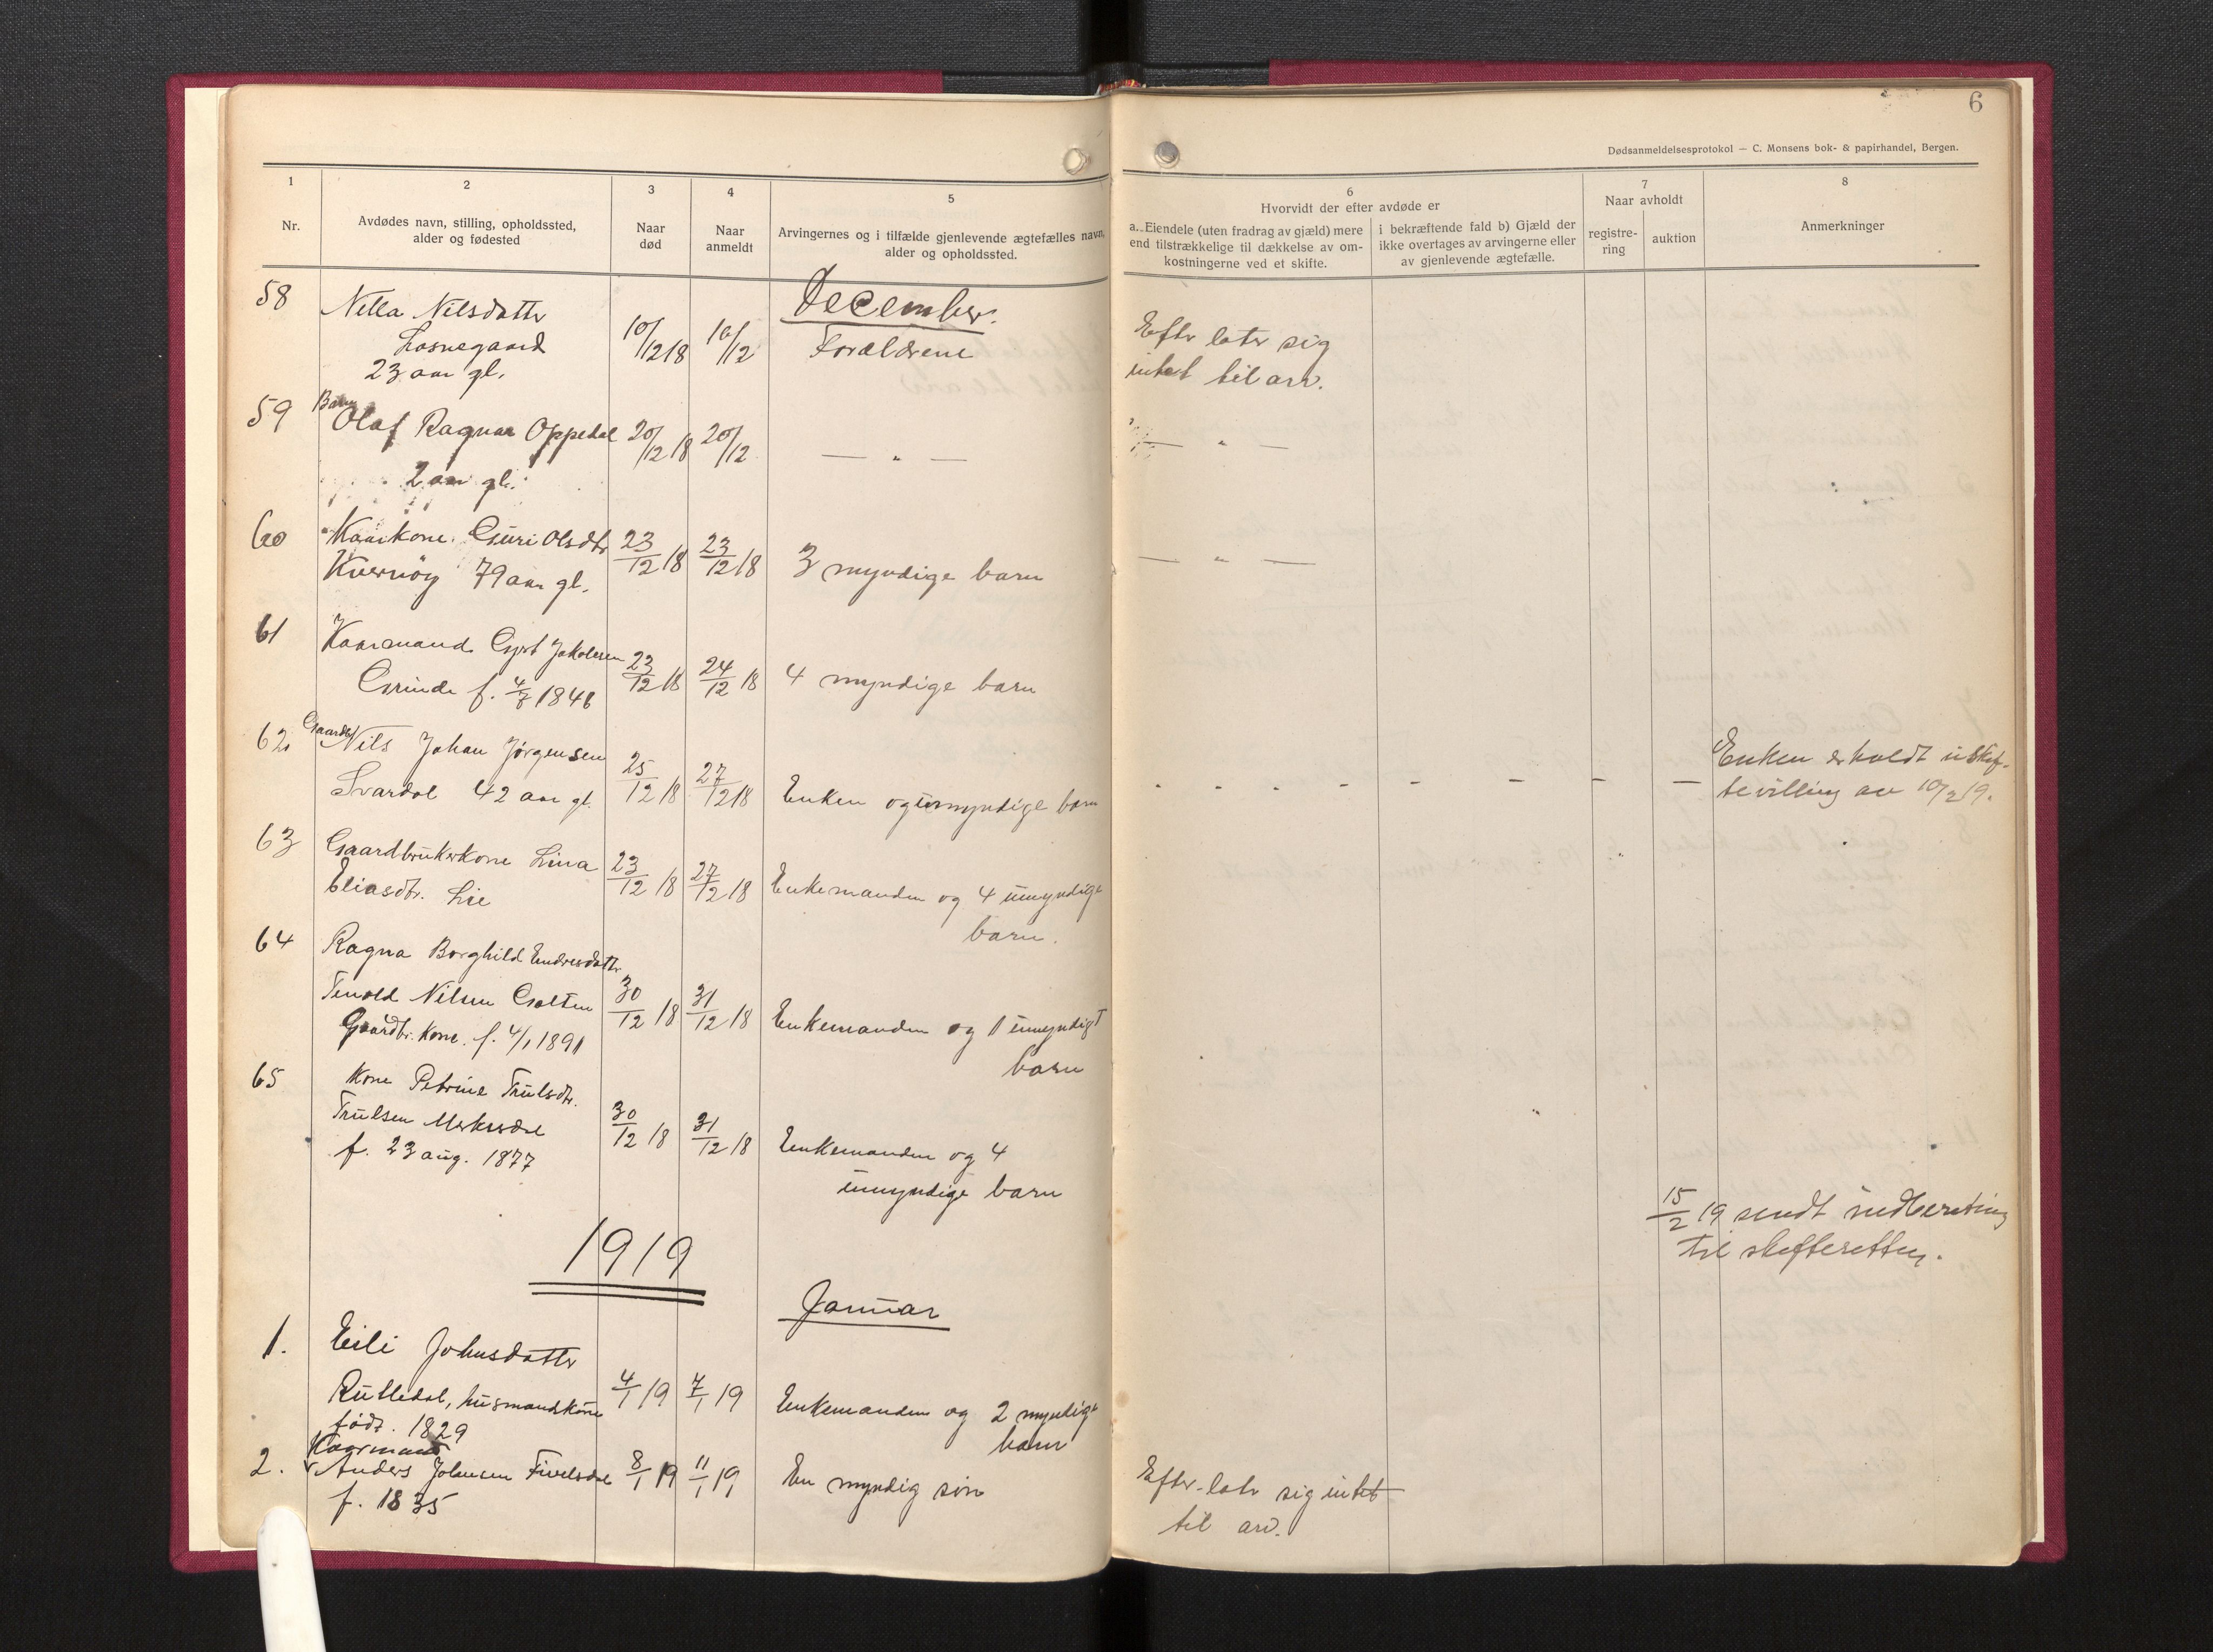 6
Dødsanmeldelsesprotokol — C. Monsens bok- & papirhandel, Bergen.
1
Nr.
2
Avdødes navn, stilling, opholdssted,
alder og fødested
3
Naar
død
4
Naar
anmeldt
5
Arvingernes og i tilfælde gjenlevende ægtefælles navn,
alder og opholdssted.
6
Hvorvidt der efter avdøde er
a. Eiendele (uten fradrag av gjæld) mere
end tilstrækkelige til dækkelse av om-
kostningerne ved et skifte.
i bekræftende fald b) Gjæld der
ikke overtages av arvingerne eller
av gjenlevende ægtefælle.
7
Naar avholdt
registre-
ring
auktion
8
Anmerkninger
December.
58
Nella Nilsdattr
Losnegaard
23 aar gl.
10/12 18
10/12
Forældrene
Eftr later sig
intet til arv.
59
Barn
Olaf Ragnar Oppedal
2 aar gl.
20/12 18
20/12
— " —
— " —
60
Kaarkone Guri Olsdtr
Kvernøy 79 aar gl.
23/12 18
23/12 18
3 myndige barn
— " —
61
Kaarmand Jakobsen
Grinde f. 1846
23/12 18
24/12 18
4 myndige barn
62
Gaardbr
Nils Johan Jørgensen
Svardal 42 aar gl.
25/12 18
27/12 18
Enken og umyndige barn
- - - - - - - -
Enken erholdt uskif-
tebevilling av 10/2 19.
63
Gaardbrukerkone Lina
Eliasdtr. Lie
23/12 18
27/12 18
Enkemanden og 4 umyndige
barn.
64
Ragna Borghild Endresdattr
Tenold Nilsen
Gaardbr. kone. f. 4/1 1891
30/12 18
31/12 18
Enkemanden og 1 umyndigt
barn
65
Kone Petrine Trulsdtr.
Trulsen
f. 23 aug. 1877
30/12 18
31/12 18
Enkemanden og 4
umyndige barn
15/2 19 sendt indberetning
til skifteretten.
1919
Januar
1.
Eili Johnsdattr
Rutledal, husmandskone
født. 1829
4/1 19
7/1 19
Enkemanden og 2 myndige
barn
2.
Kaarmand
Anders Johnsen
f. 1835
8/1 19
11/1 19
En myndig søn
Eftr. latr sig intet
til arv.